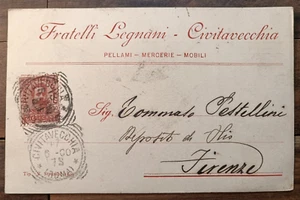 Fratelli Legnani - Civitavecchia
PELLAMI - MERCERIE - MOBILI
Sig. Tommaso Pestellini
Deposit di Olio
Firenze
CIVITAVECCHIA